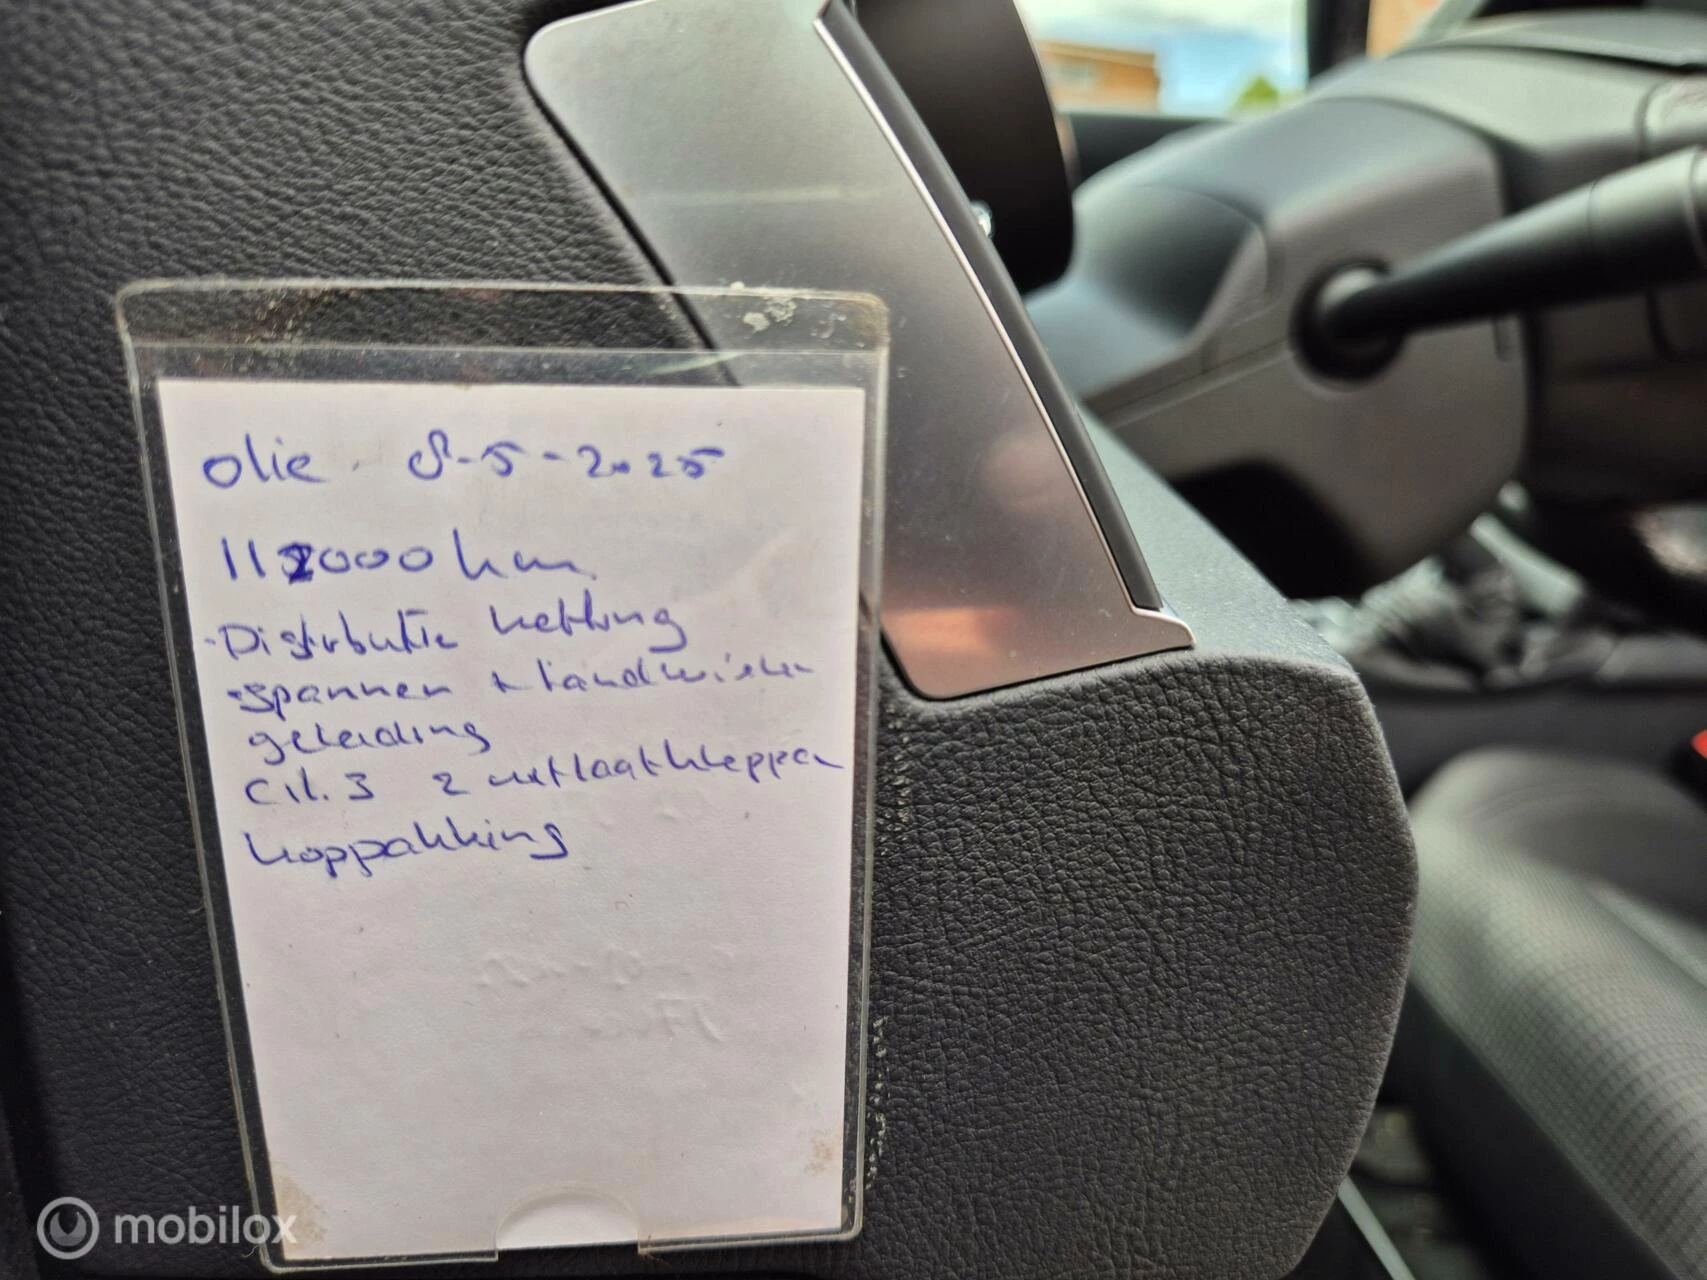 olie. 8-5-2025
112000 km.
- Distributie ketting
- spannen + tandwielen
geleiding
Cil. 3 2 uitlaatkleppen
koppakking
mobilox